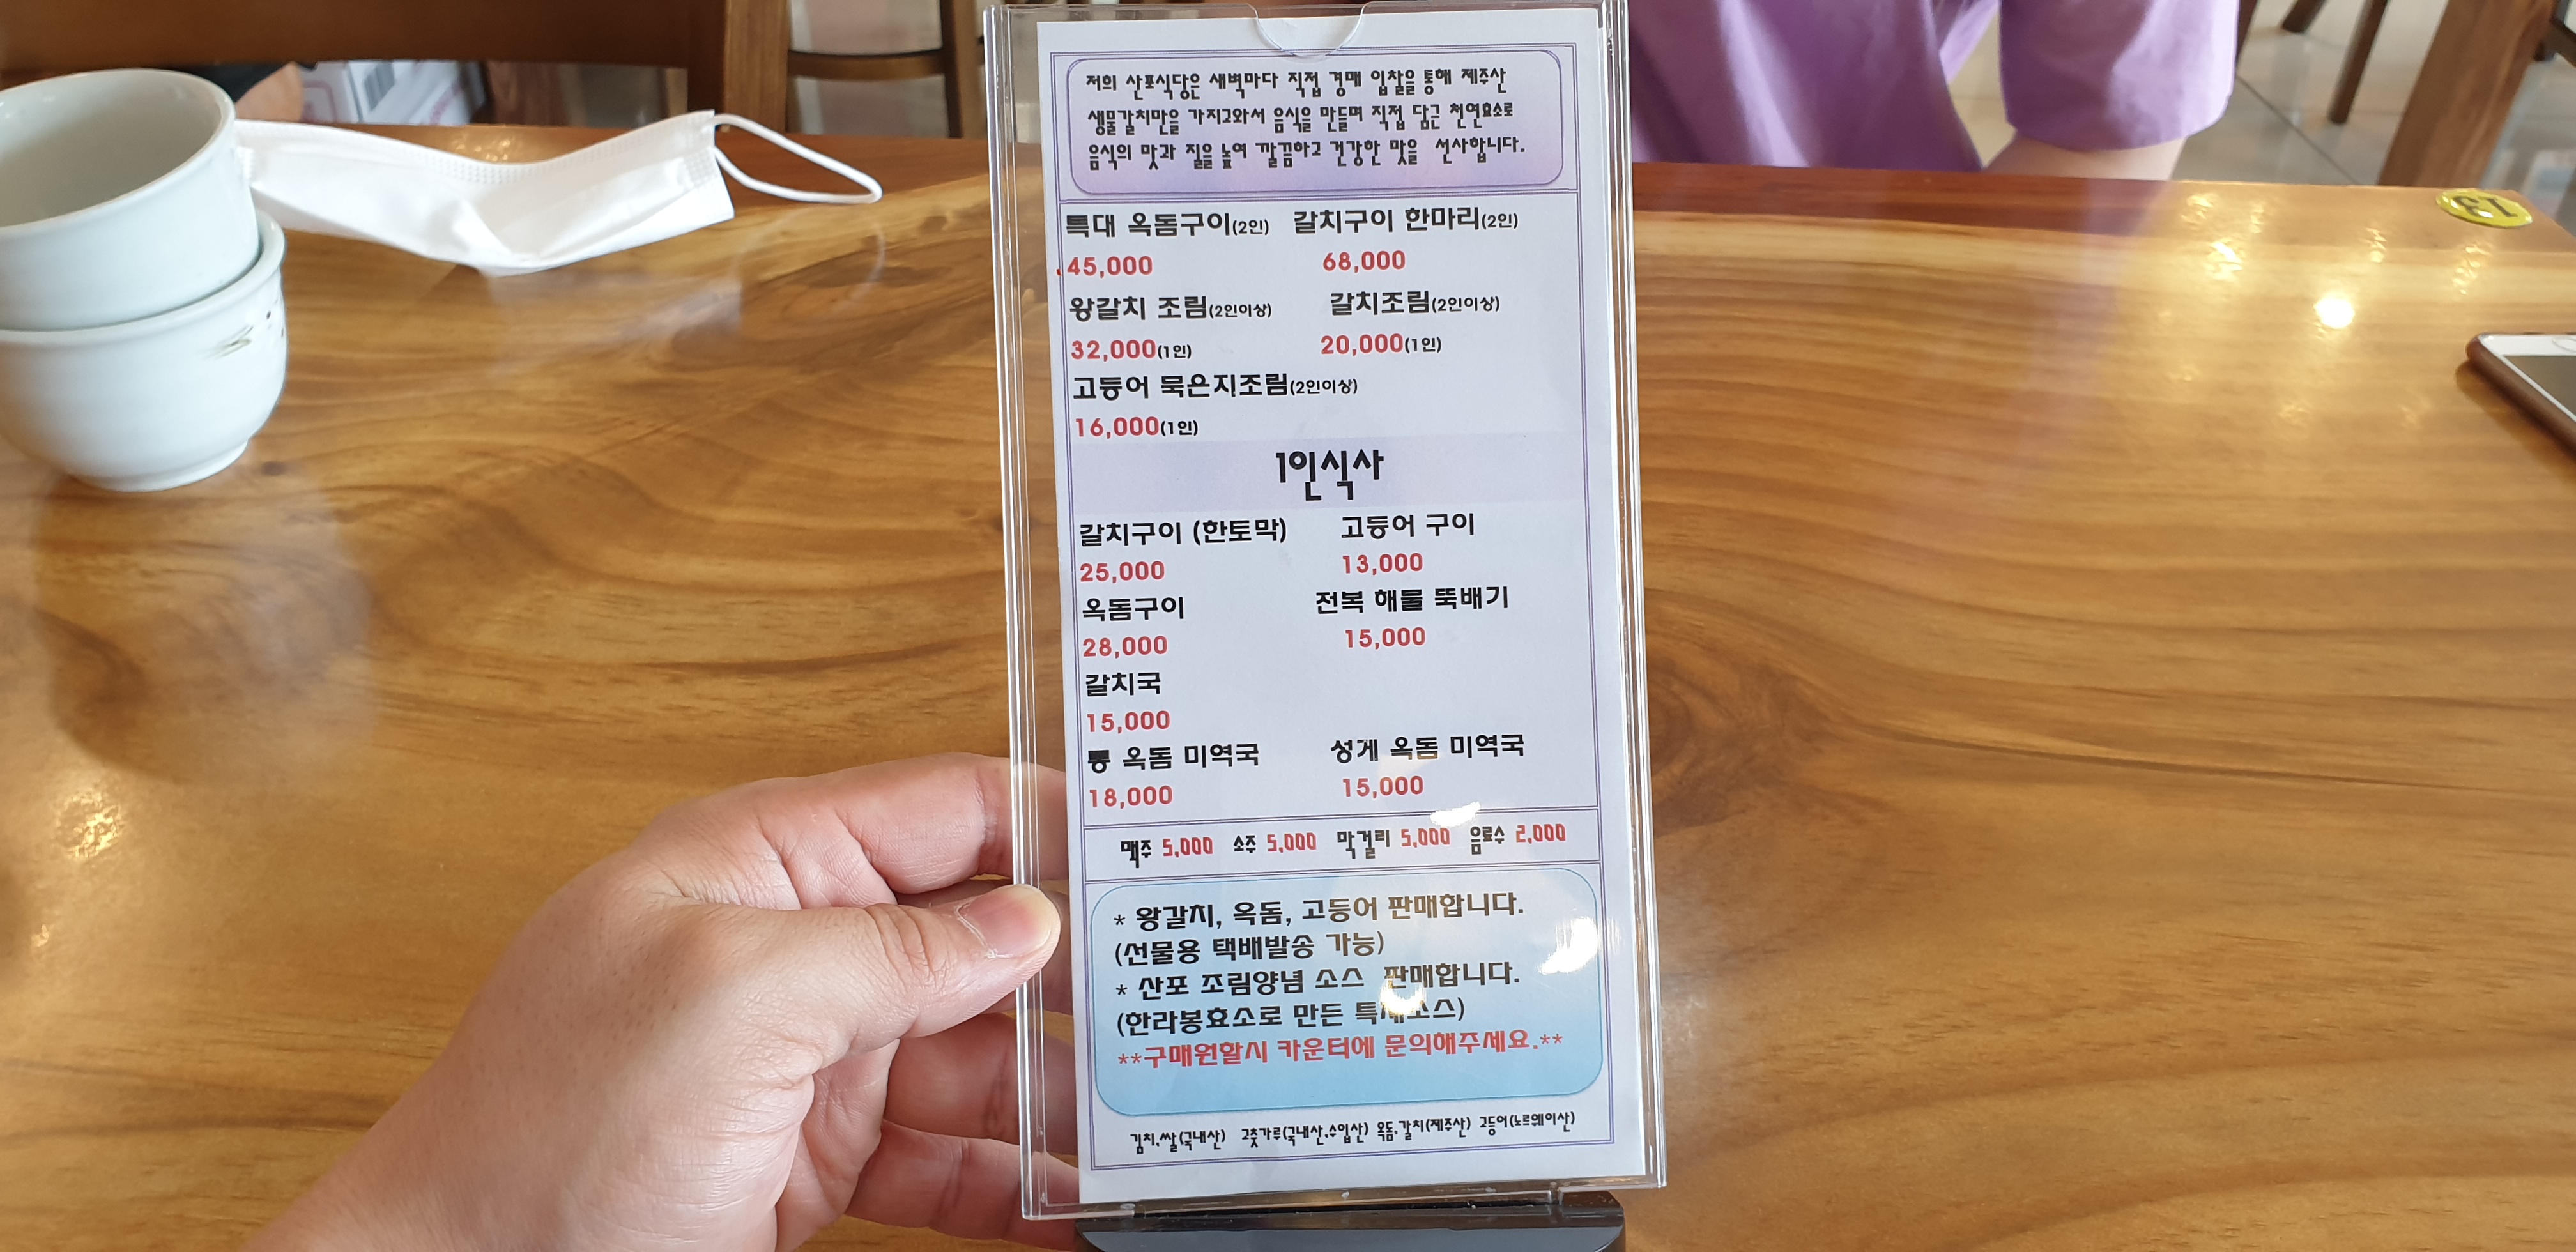 저희 산포식당은 새벽마다 직접 경매 입찰을 통해 제주산
생물갈치만을 가지고와서 음식을 만들며 직접 담근 천연효소로
음식의 맛과 질을 높여 깔끔하고 건강한 맛을 선사합니다.
특대 옥돔구이(2인) 갈치구이 한마리(2인)
45,000 68,000
왕갈치 조림(2인이상) 갈치조림(2인이상)
32,000(1인) 20,000(1인)
고등어 묵은지조림(2인이상)
16,000(1인)
1인식사
갈치구이 (한토막) 고등어 구이
25,000 13,000
옥돔구이 전복 해물 뚝배기
28,000 15,000
갈치국
15,000
통 옥돔 미역국 성게 옥돔 미역국
18,000 15,000
맥주 5,000 소주 5,000 막걸리 5,000 음료수 2,000
* 왕갈치, 옥돔, 고등어 판매합니다.
(선물용 택배발송 가능)
* 산포 조림양념 소스 판매합니다.
(한라봉효소로 만든 특제소스)
**구매원할시 카운터에 문의해주세요.**
김치,쌀(국내산) 고춧가루(국내산,수입산) 옥돔,갈치(제주산) 고등어(노르웨이산)
13